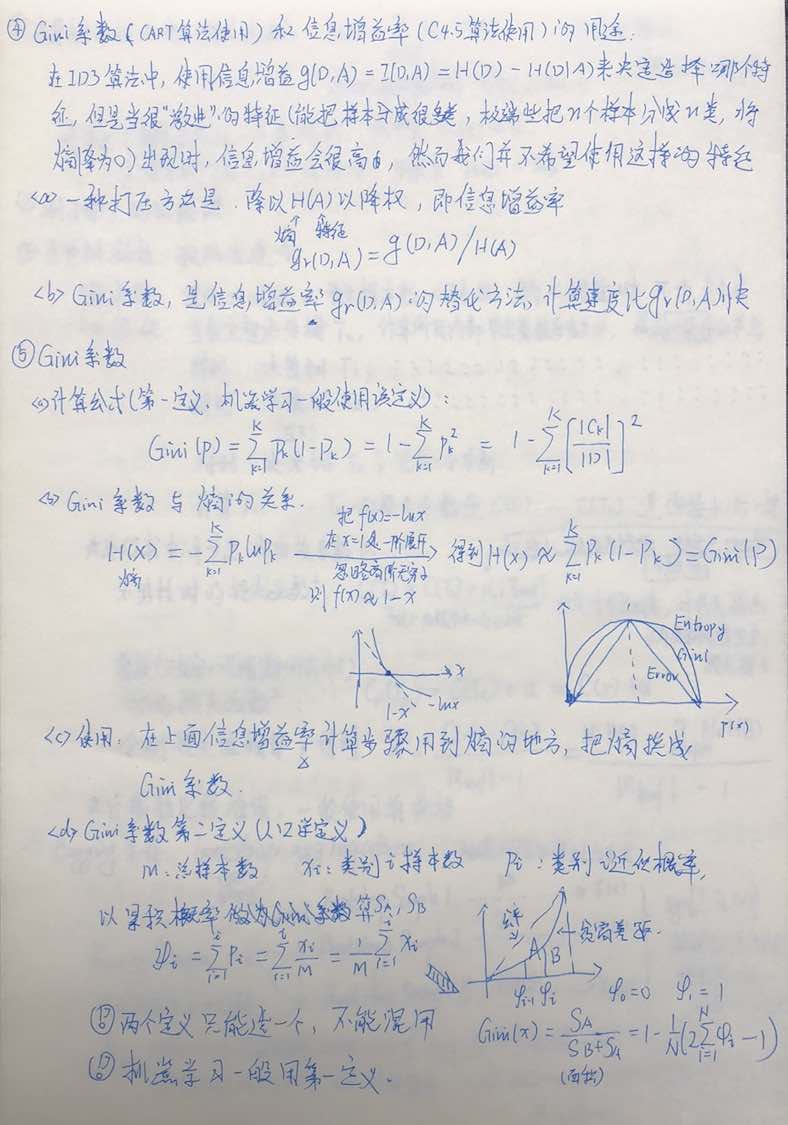 ④ Gini系数(CART算法使用)和信息增益率(C4.5算法使用)的用途:
在ID3算法中,使用信息增益g(D,A)=I(D,A)=H(D)-H(D|A)来决定选择哪个特
征,但是当很"激进"的特征(能把样本分成很多类,极端些把n个样本分成n类,将
熵降为0)出现时,信息增益会很高,然而我们并不希望使用这样的特征
<a> 一种打压方法是.除以H(A)以降权,即信息增益率
熵 特征
gr(D,A)=g(D,A)/H(A)
<b> Gini系数,是信息增益率gr(D,A)的替代方法,计算速度比gr(D,A)快
⑤ Gini系数
<a> 计算公式(第一定义.机器学习一般使用该定义):
Gini(p)=∑_{k=1}^{K} Pk(1-Pk)=1-∑_{k=1}^{K} Pk²=1-∑_{k=1}^{K}[|Ck|/|D|]²
<b> Gini系数与熵的关系.
把f(x)=-lnx
在x=1处一阶展开
忽略高阶无穷小
则f(x)≈1-x
H(X)=-∑_{k=1}^{K} Pk lnPk → 得到H(x)≈∑_{k=1}^{K} Pk(1-Pk)=Gini(P)
熵
x
1-x
-lnx
Entropy
Gini
Error
<c> 使用.在上面信息增益率计算步骤用到熵的地方,把熵换成
Gini系数.
<d> Gini系数第二定义(人口学定义)
M:总样本数 xi:类别i样本数 Pi:类别i近似概率,
以累积概率做为Gini系数算SA,SB
φi=∑_{i=1}^{i} Pi=∑_{i=1}^{i} xi/M=1/M ∑_{i=1}^{i} xi
A
B
贫富差距.
φi-1 φi
φ0=0 φ1=1
两个定义只能选一个,不能混用
Gini(x)=SA/(SB+SA)=1-1/N(2∑_{i=1}^{N} φi-1)
(面积)
机器学习一般用第一定义.